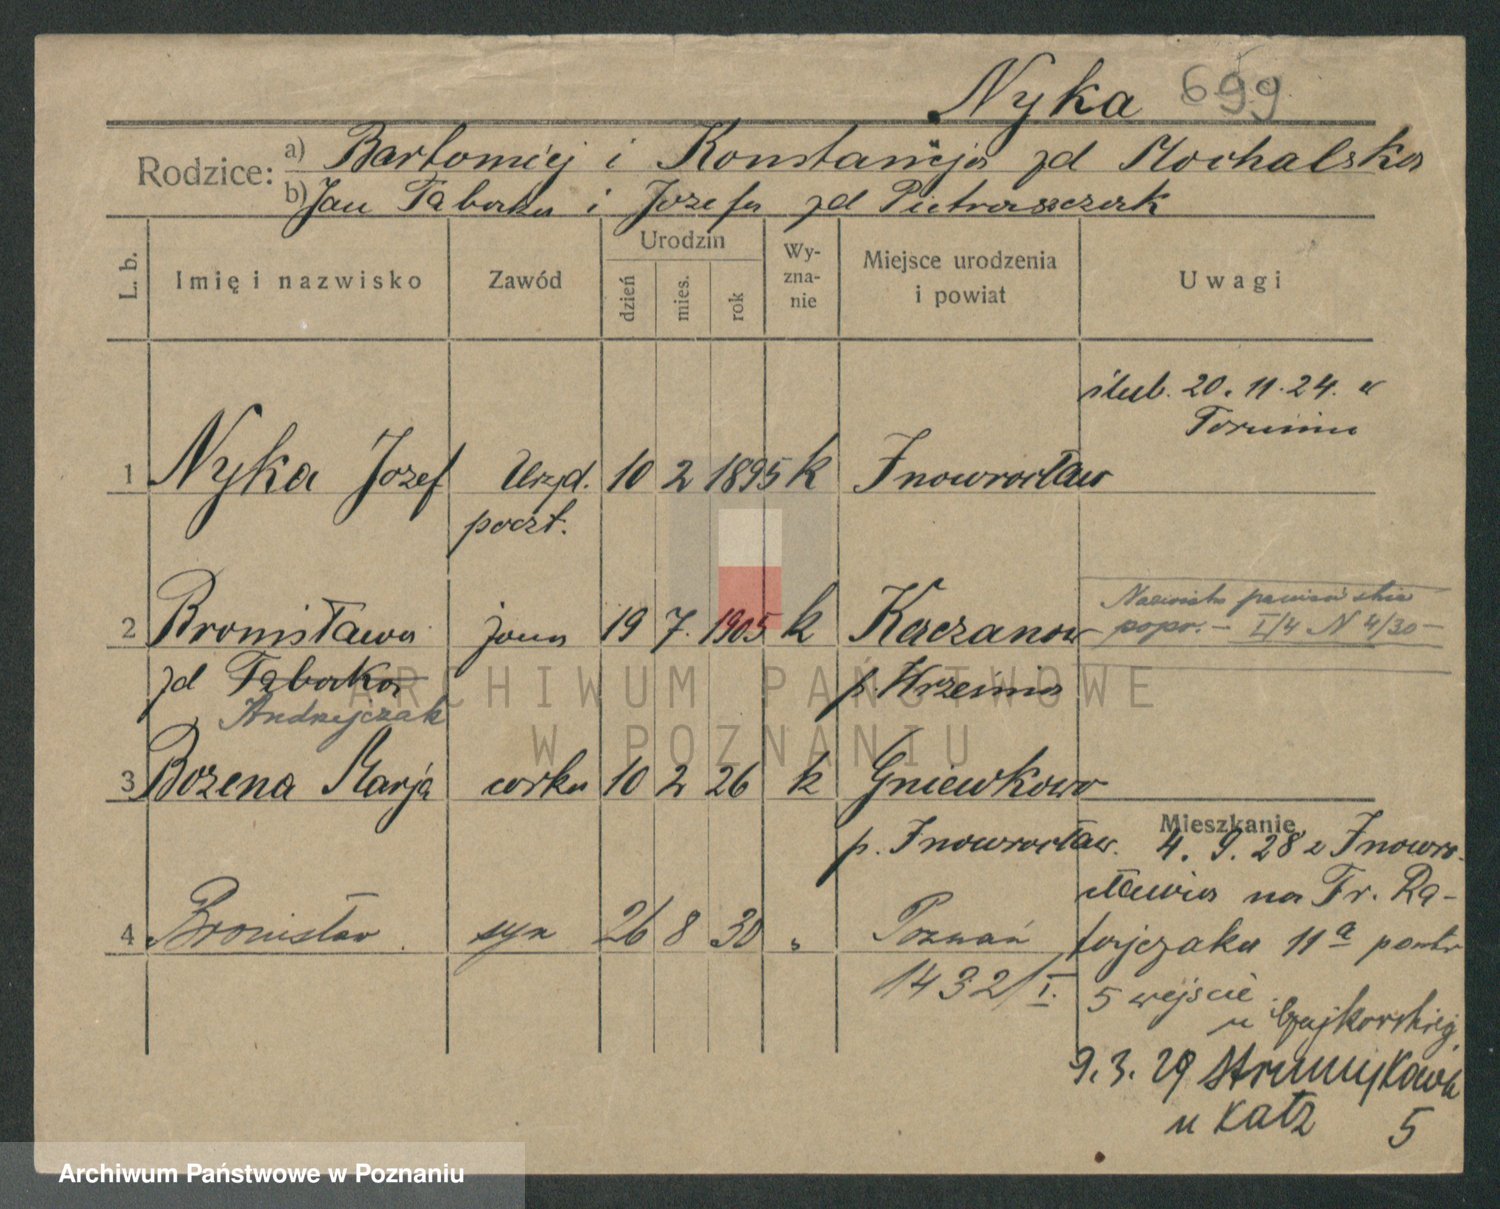 Nyka 699
Rodzice: a) Bartomiej i Konstancja zd Mochalska
b) Jan Taborka i Jozefa zd Pietraszczak
L. b.
Imię i nazwisko
Zawód
Urodzin
dzień
mies.
rok
Wy-
zna-
nie
Miejsce urodzenia
i powiat
Uwagi
ślub. 20. 11. 24. w
Toruniu
1 Nyka Jozef Urzd. 10 2 1895 k Inowrocław
poczt.
2 Bronisława żona 19 7. 1905 k Kaczanow
Nazwisko panieńskie
popr. - I/4 N 4/30 -
zd Taborka p. Września
Andrzejczak
3 Bozena Marja corka 10 2 26 k Gniewkowo
p. Inowrocław.
Mieszkanie
4. 9. 28 z Inowro-
cławia na Fr. Ra-
tajczaka 11a parter
4 Bronisław syn 26 8 30 " Poznań
1432/I.
5 wejscie
u Czajkowskiej
9. 3. 29 Strumykowa
u Katz 5
ARCHIWUM PAŃSTWOWE
W POZNANIU
Archiwum Państwowe w Poznaniu